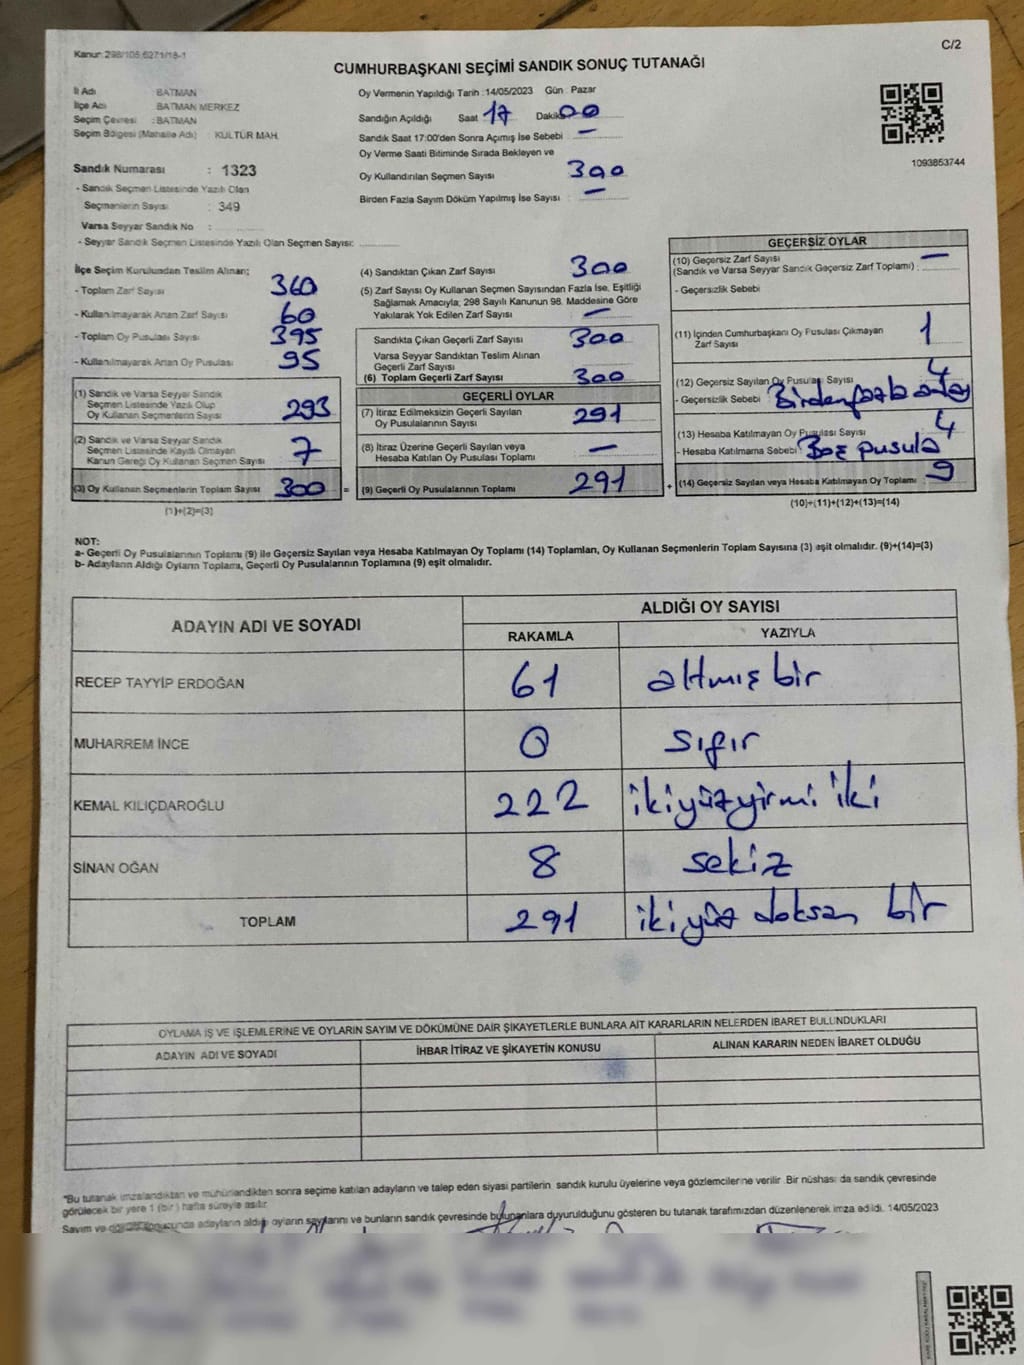 Kanun: 298/105 6271/18-1
C/2
CUMHURBAŞKANI SEÇİMİ SANDIK SONUÇ TUTANAĞI
İl Adı BATMAN
İlçe Adı BATMAN MERKEZ
Seçim Çevresi : BATMAN
Seçim Bölgesi (Mahalle Adı) : KÜLTÜR MAH.
Sandık Numarası : 1323
- Sandık Seçmen Listesinde Yazılı Olan
Seçmenlerin Sayısı : 349
Varsa Seyyar Sandık No :
- Seyyar Sandık Seçmen Listesinde Yazılı Olan Seçmen Sayısı:
Oy Vermenin Yapıldığı Tarih : 14/05/2023 Gün : Pazar
Sandığın Açıldığı Saat 17 Dakika 00
Sandık Saat 17:00'den Sonra Açımış İse Sebebi : —
Oy Verme Saati Bitiminde Sırada Bekleyen ve
Oy Kullandırılan Seçmen Sayısı 300
Birden Fazla Sayım Döküm Yapılmış İse Sayısı : —
1093853744
İlçe Seçim Kurulundan Teslim Alınan;
- Toplam Zarf Sayısı 360
- Kullanılmayarak Artan Zarf Sayısı 60
- Toplam Oy Pusulası Sayısı 395
- Kullanılmayarak Artan Oy Pusulası 95
(1) Sandık ve Varsa Seyyar Sandık
Seçmen Listesinde Yazılı Olup
Oy Kullanan Seçmenlerin Sayısı 293
(2) Sandık ve Varsa Seyyar Sandık
Seçmen Listesinde Kayıtlı Olmayan
Kanun Gereği Oy Kullanan Seçmen Sayısı 7
(3) Oy Kullanan Seçmenlerin Toplam Sayısı 300 =
(1)+(2)=(3)
(4) Sandıktan Çıkan Zarf Sayısı 300
(5) Zarf Sayısı Oy Kullanan Seçmen Sayısından Fazla İse, Eşitliği
Sağlamak Amacıyla; 298 Sayılı Kanunun 98. Maddesine Göre
Yakılarak Yok Edilen Zarf Sayısı —
Sandıkta Çıkan Geçerli Zarf Sayısı 300
Varsa Seyyar Sandıktan Teslim Alınan
Geçerli Zarf Sayısı
(6) Toplam Geçerli Zarf Sayısı 300
GEÇERLİ OYLAR
(7) İtiraz Edilmeksizin Geçerli Sayılan
Oy Pusulalarının Sayısı 291
(8) İtiraz Üzerine Geçerli Sayılan veya
Hesaba Katılan Oy Pusulası Toplamı —
(9) Geçerli Oy Pusulalarının Toplamı 291 +
GEÇERSİZ OYLAR
(10) Geçersiz Zarf Sayısı —
(Sandık ve Varsa Seyyar Sandık Geçersiz Zarf Toplamı) :
- Geçersizlik Sebebi
(11) İçinden Cumhurbaşkanı Oy Pusulası Çıkmayan
Zarf Sayısı 1
(12) Geçersiz Sayılan Oy Pusulası Sayısı 4
- Geçersizlik Sebebi
(13) Hesaba Katılmayan Oy Pusulası Sayısı 4
- Hesaba Katılmama Sebebi Boş pusula
(14) Geçersiz Sayılan veya Hesaba Katılmayan Oy Toplamı 9
(10)+(11)+(12)+(13)=(14)
NOT:
a- Geçerli Oy Pusulalarının Toplamı (9) ile Geçersiz Sayılan veya Hesaba Katılmayan Oy Toplamı (14) Toplamları, Oy Kullanan Seçmenlerin Toplam Sayısına (3) eşit olmalıdır. (9)+(14)=(3)
b- Adayların Aldığı Oyların Toplamı, Geçerli Oy Pusulalarının Toplamına (9) eşit olmalıdır.
ADAYIN ADI VE SOYADI ALDIĞI OY SAYISI
RAKAMLA YAZIYLA
RECEP TAYYİP ERDOĞAN 61 altmış bir
MUHARREM İNCE 0 sıfır
KEMAL KILIÇDAROĞLU 222 ikiyüzyirmi iki
SİNAN OĞAN 8 sekiz
TOPLAM 291 ikiyüz doksan bir
OYLAMA İŞ VE İŞLEMLERİNE VE OYLARIN SAYIM VE DÖKÜMÜNE DAİR ŞİKAYETLERLE BUNLARA AİT KARARLARIN NELERDEN İBARET BULUNDUKLARI
ADAYIN ADI VE SOYADI İHBAR İTİRAZ VE ŞİKAYETİN KONUSU ALINAN KARARIN NEDEN İBARET OLDUĞU
*Bu tutanak imzalandıktan ve mühürlendikten sonra seçime katılan adayların ve talep eden siyasi partilerin sandık kurulu üyelerine veya gözlemcilerine verilir. Bir nüshası da sandık çevresinde
görülecek bir yere 1 (bir) hafta süreyle asılır.
Sayım ve döküm sonucunda adayların aldığı oyların sayılarını ve bunların sandık çevresinde bulunanlara duyurulduğunu gösteren bu tutanak tarafımızdan düzenlenerek imza edildi. 14/05/2023